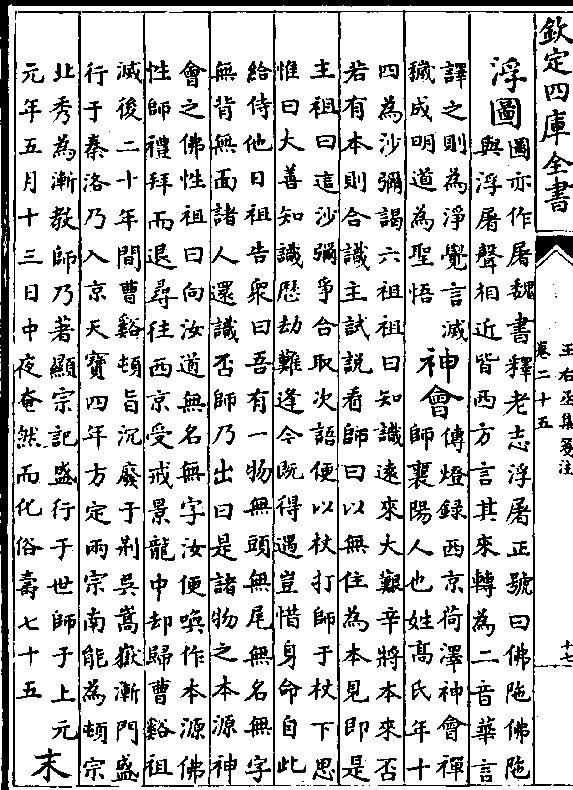 欽定四庫全書
王右丞集箋注
卷二十五
十七
浮圖
圖亦作屠魏書釋老志浮屠正號曰佛陁佛陁
與浮屠聲相近皆西方言其來轉為二音華言
譯之則為淨覺言滅
穢成明道為聖悟
神會
傳燈録西京荷澤神會禪
師襄陽人也姓髙氏年十
四為沙彌謁六祖祖曰知識逺來大艱辛將本來否
若有本則合識主試説看師曰以無住為本見即是
主祖曰這沙彌爭合取次語便以杖打師于杖下思
惟曰大善知識厯劫難逢今既得遇豈惜身命自此
給侍他日祖告衆曰吾有一物無頭無尾無名無字
無背無面諸人還識否師乃出曰是諸物之本源神
會之佛性祖曰向汝道無名無字汝便喚作本源佛
性師禮拜而退尋往西京受戒景龍中却歸曹谿祖
滅後二十年間曹谿頓旨沉廢于荆吳嵩嶽漸門盛
行于秦洛乃入京天寶四年方定兩宗南能為頓宗
北秀為漸教師乃著顯宗記盛行于世師于上元
元年五月十三日中夜奄然而化俗壽七十五
末